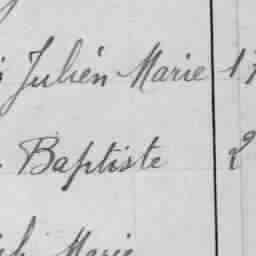 Julien Marie 17
Baptiste 2
Marie